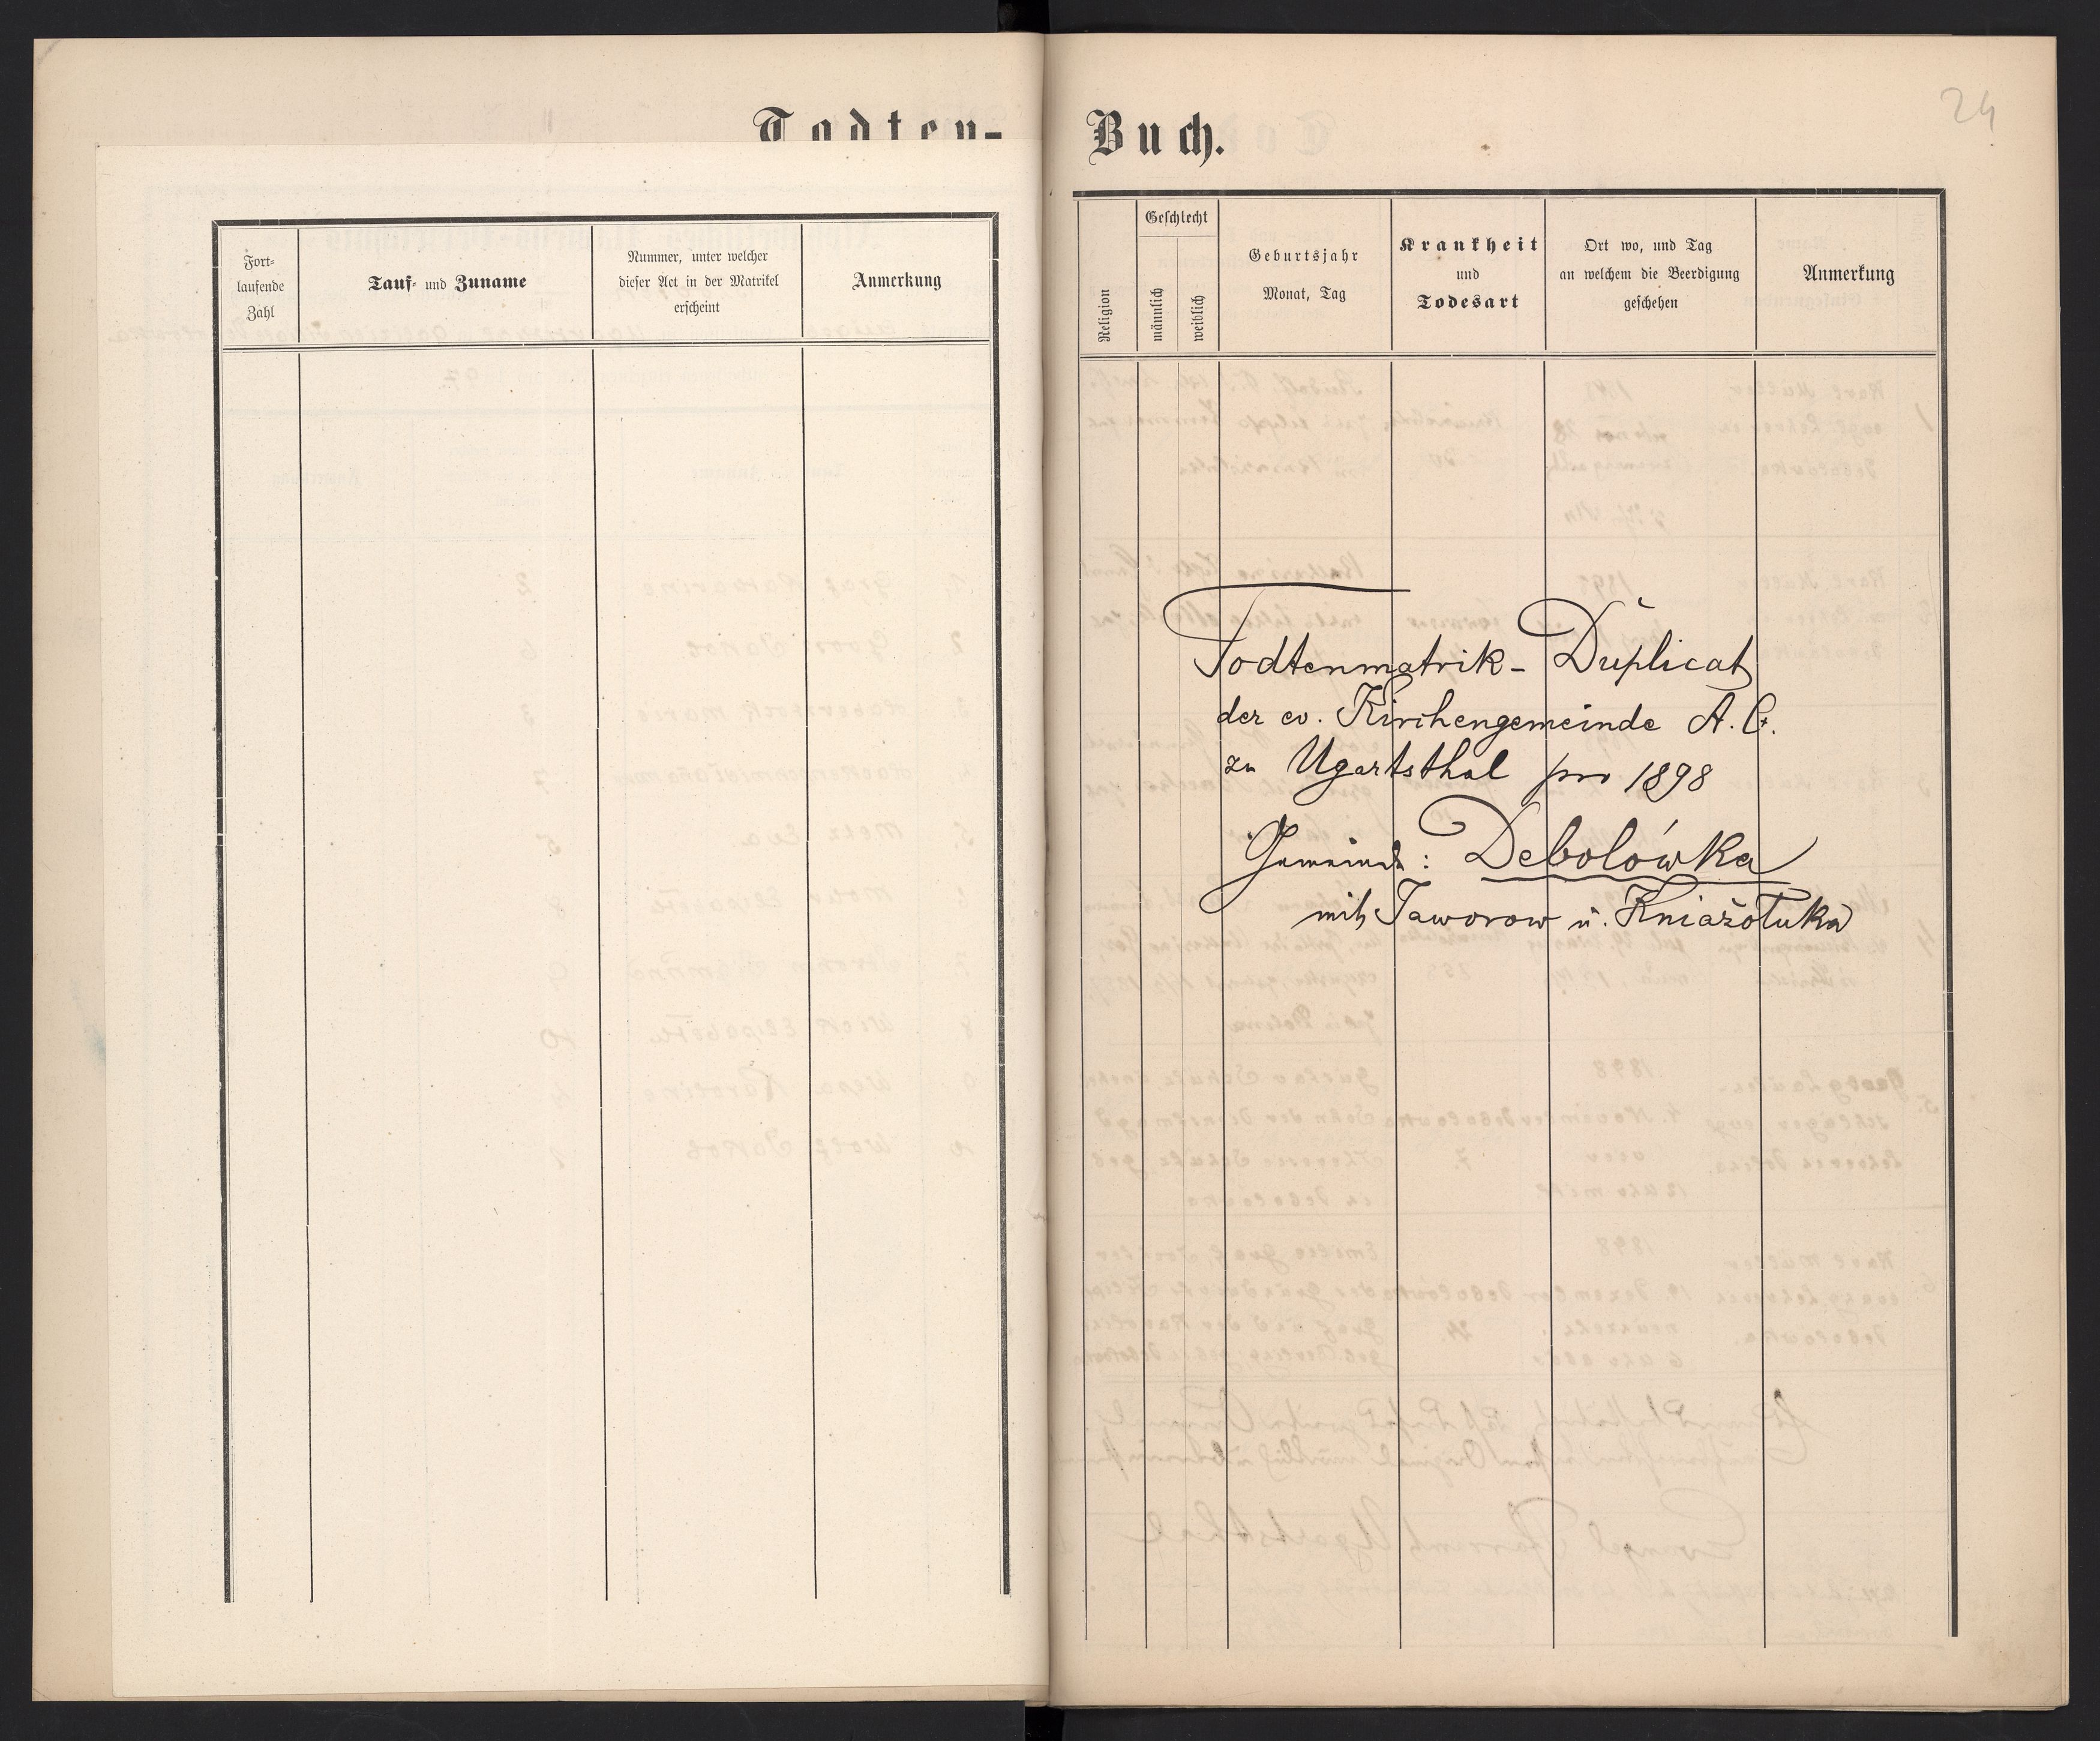 Todten-Buch.
24
Fort-
laufende
Zahl
Tauf- und Zuname
Nummer, unter welcher
dieser Act in der Matrikel
erscheint
Anmerkung
Religion
Geschlecht
männlich
weiblich
Geburtsjahr
Monat, Tag
Krankheit
und
Todesart
Ort wo, und Tag
an welchem die Beerdigung
geschehen
Anmerkung
Todtenmatrik-Duplicat
der ev. Kirchengemeinde A. C.
zu Ugartsthal pro 1898
Gemeinde: Debolówka
mit Jaworow u. Kniażołuka